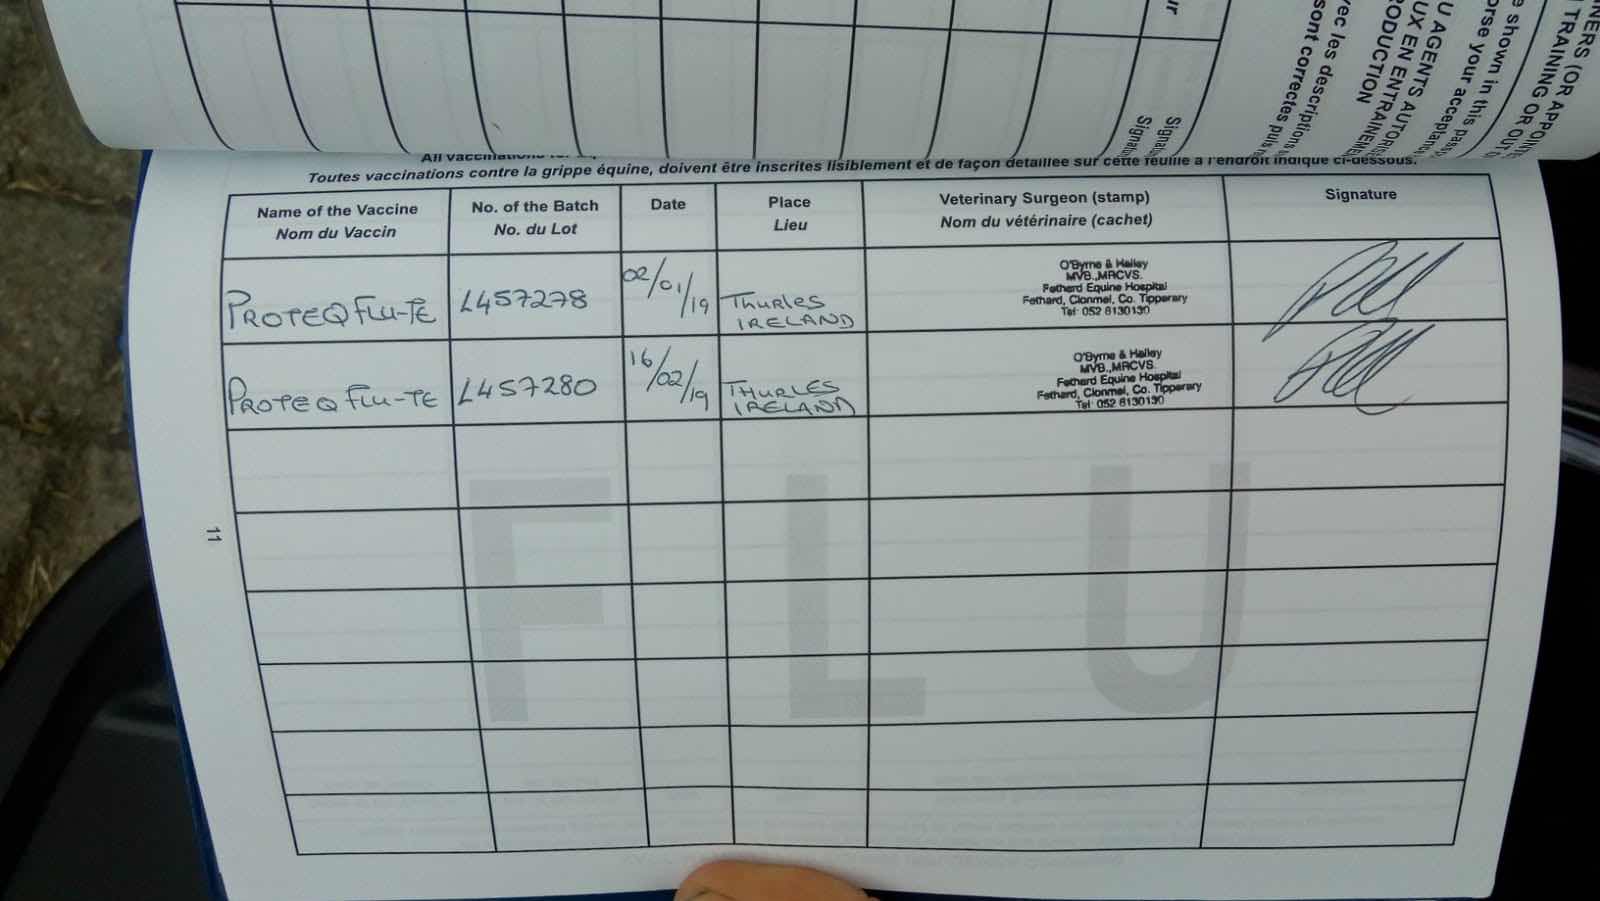 ur
Signatu
Signatu
NERS (OR APPOIN
TRAINING OR OUT O
e shown in this pass
orse your acceptanc
U AGENTS AUTORIS
UX EN ENTRAINEME
RODUCTION
vec les descriptions
sont correctes puis
All vaccinations
Toutes vaccinations contre la grippe équine, doivent être inscrites lisiblement et de façon détaillée sur cette feuille à l'endroit indiqué ci-dessous.
Name of the Vaccine
Nom du Vaccin
No. of the Batch
No. du Lot
Date
Place
Lieu
Veterinary Surgeon (stamp)
Nom du vétérinaire (cachet)
Signature
PROTEQ FLU-TE
L457278
02/01/19
Thurles
IRELAND
O'Byrne & Halley
MVB.,MRCVS.
Fethard Equine Hospital
Fethard, Clonmel, Co. Tipperary
Tel: 052 6130130
PROTEQ FLU-TE
L457280
16/02/19
THURLES
IRELAND
O'Byrne & Halley
MVB.,MRCVS.
Fethard Equine Hospital
Fethard, Clonmel, Co. Tipperary
Tel: 052 6130130
FLU
11